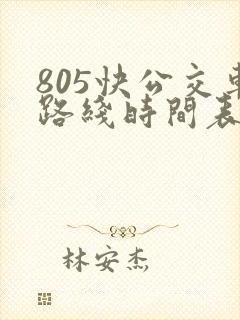 805快公交車
路綫時間表
林安杰